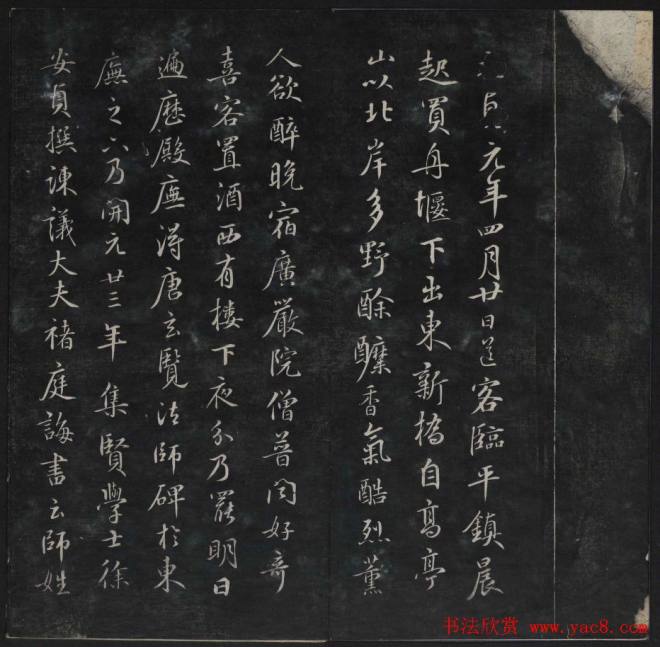 元年四月廿日送客臨平鎮晨
起買舟堰下出東新橋自高亭
山以北岸多野酴醾香氣酷烈薰
人欲醉晚宿廣嚴院僧普聞好奇
喜客置酒西有樓下夜分乃罷明日
遍歷殿廡得唐玄覽法師碑於東
廡之下乃開元廿三年集賢學士徐
安貞撰諫議大夫褚庭誨書云師姓
书法欣赏 www.yac8.com